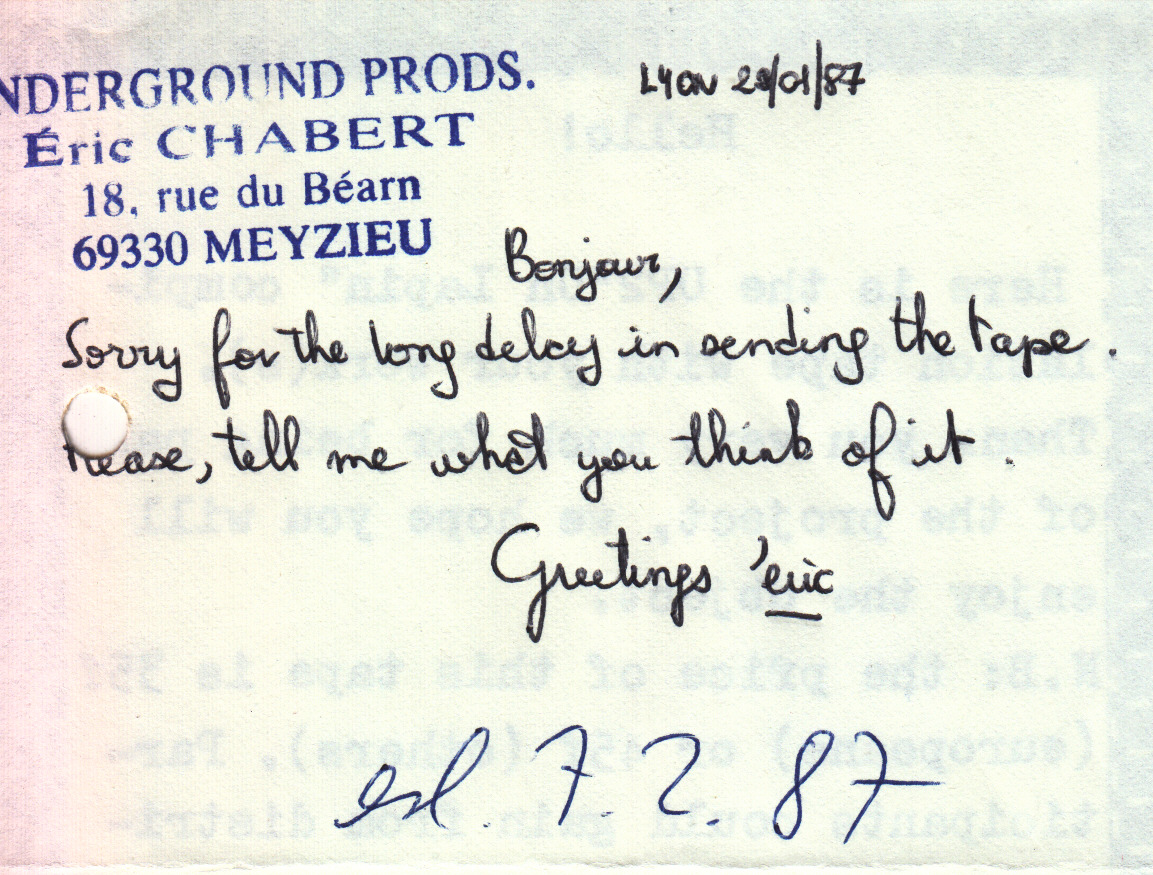 NDERGROUND PRODS.
Éric CHABERT
18, rue du Béarn
69330 MEYZIEU
LYON 28/01/87
Bonjour,
Sorry for the long delay in sending the tape.
Please, tell me what you think of it.
Greetings 'eric
erl. 7.2.87